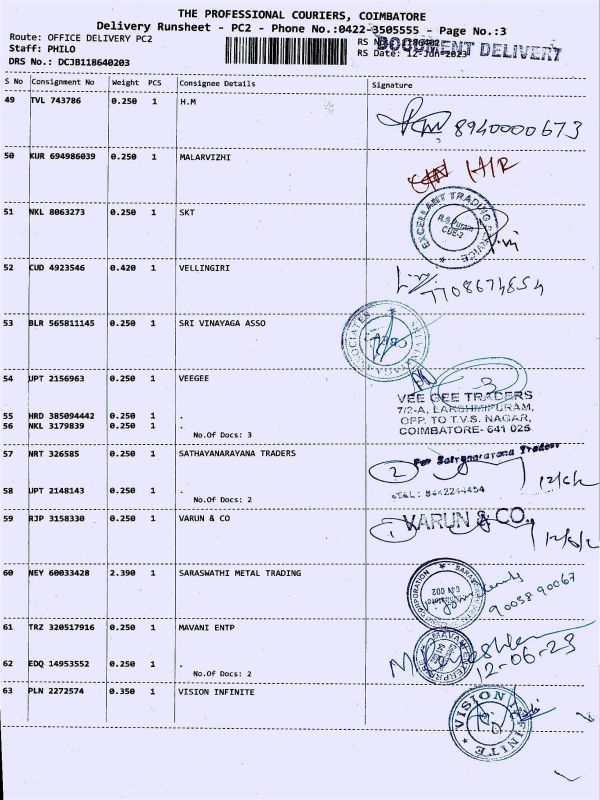 THE PROFESSIONAL COURIERS, COIMBATORE
Delivery Runsheet - PC2 - Phone No.:0422-3505555 - Page No.:3
Route: OFFICE DELIVERY PC2
Staff: PHILO
DRS No.: DCJB118640203
RS No.
DOCUMENT DELIVERY
RS Date: 12-Jun-2023
S No Consignment No Weight PCS Consignee Details Signature
49 TVL 743786 0.250 1 H.M
8940000673
50 KUR 694986039 0.250 1 MALARVIZHI
H/R
51 NKL 8063273 0.250 1 SKT
EXCELLANT TRADING SERVICE
R.S.Puram
CBE-2
52 CUD 4923546 0.420 1 VELLINGIRI
7708674854
53 BLR 565811145 0.250 1 SRI VINAYAGA ASSO
54 UPT 2156963 0.250 1 VEEGEE
3
VEE GEE TRADERS
7/2-A, LAKSHMIPURAM,
OPP. TO T.V.S. NAGAR,
COIMBATORE- 641 025
55 HRD 385094442 0.250 1 .
56 NKL 3179839 0.250 1 .
No.Of Docs: 3
57 NRT 326585 0.250 1 SATHAYANARAYANA TRADERS
For Satyanarayana Traders
2
12/6/2
58 UPT 2148143 0.250 1 .
No.Of Docs: 2
59 RJP 3158330 0.250 1 VARUN & CO
1
VARUN & CO.
12/6/2
60 NEY 60033428 2.390 1 SARASWATHI METAL TRADING
90038 90067
61 TRZ 320517916 0.250 1 MAVANI ENTP
12-06-23
62 EDQ 14953552 0.250 1 .
No.Of Docs: 2
63 PLN 2272574 0.350 1 VISION INFINITE
VISION INFINITE